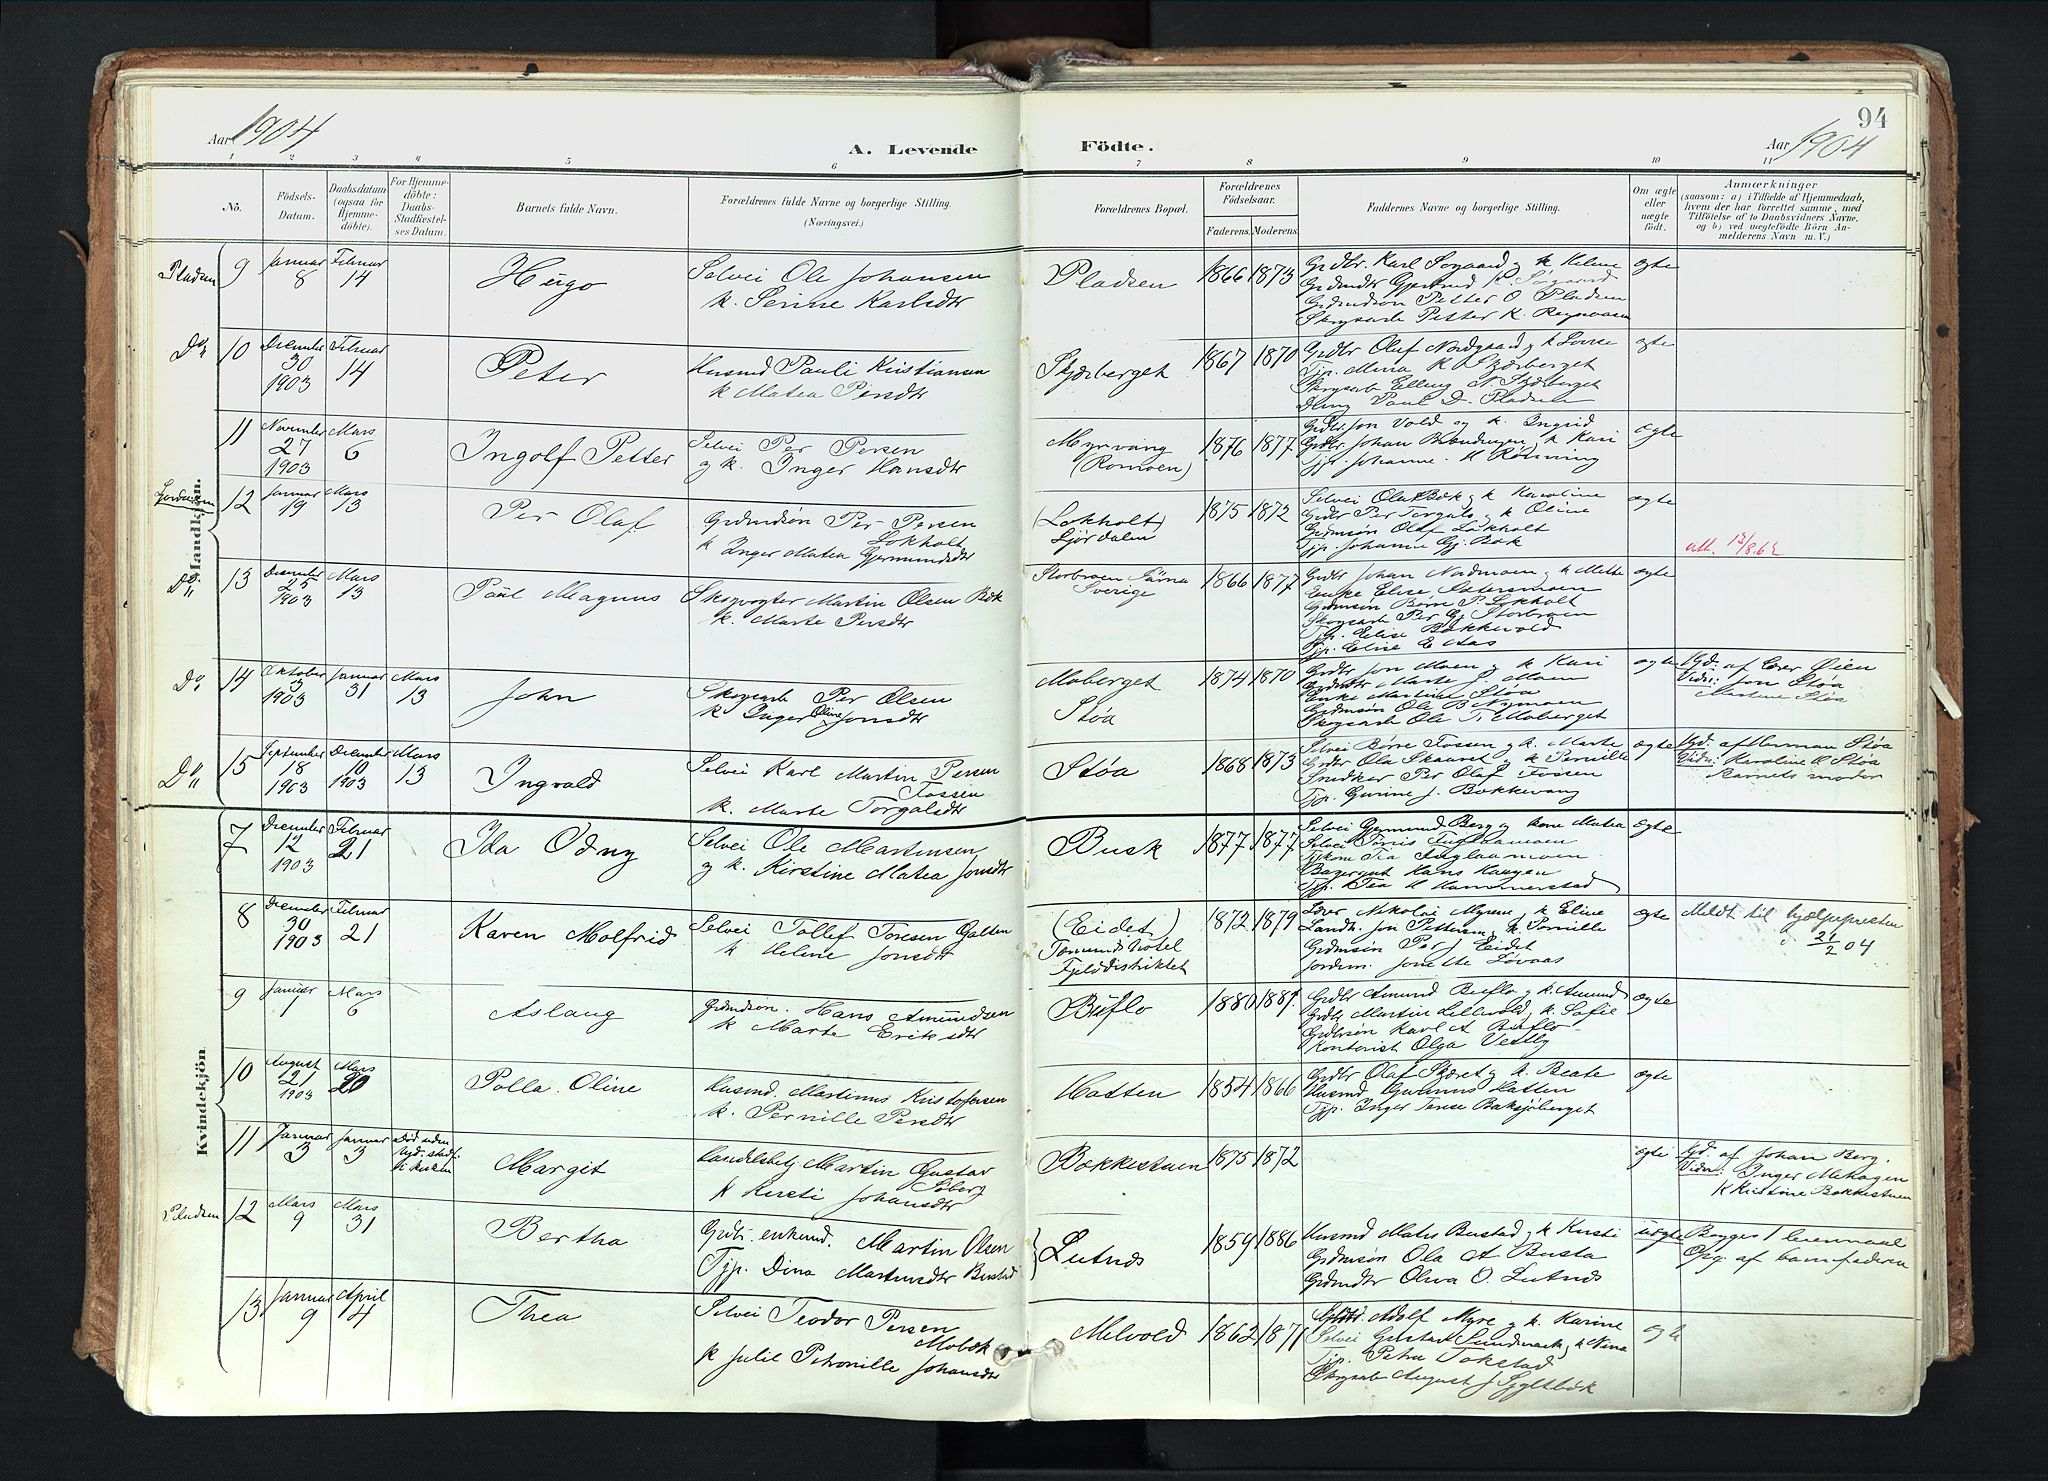 94
Aar 1904
A. Levende Födte.
Aar 1904
1 2 3 4 5 6 7 8 9 10 11
No.
Födsels-Datum.
Daabsdatum (ogsaa for Hjemme-döbte).
For Hjemme-döbte: Daabs-Stadfæstel-ses Datum.
Barnets fulde Navn.
Forældrenes fulde Navne og borgerlige Stilling.
(Næringsvei.)
Forældrenes Bopæl.
Forældrenes Födselsaar.
Faderens. Moderens.
Faddernes Navne og borgerlige Stilling.
Om ægte eller uægte födt.
Anmærkninger
(saasom: a) i Tilfælde af Hjemmedaab, hvem der har forrettet samme, med Tilföielse af to Daabsvidners Navne, og b) ved uægtefödte Börn An-melderens Navn m. V.)
Mandkjön.
Pladsen 9 Januar 8 Februar 14 Hugo
Selvei Ole Johansen
k. Serine Karlsdtr
Pladsen 1866 1873
Grdbr. Karl Sogaard og k Helene
Grdmdtr Gjertrud K. Søgaard
Grdmdsøn Petter O. Pladsen
Skogsarb Petter K.
ægte
Do 10 December 30 1903 Februar 14 Peter
Husmd Pauli Kristiansen
k Matea Persdtr
Skjærberget 1867 1870
Grdbr Olaf Nordgaard og k Lovise
Tjp. Mina K Skjærberget
Skogsarb Elling N. Skjærberget
Ung Paul D. Pladsen
ægte
11 November 27 1903 Mars 6 Ingolf Petter
Selvei Per Persen
og k. Inger Hansdtr
Myrvang
(Romoen)
1876 1877
Grdbr Jon Vold og k. Ingrid
Grdbr. Johan k Kari
Tjp. Johanne H Rønning
ægte
12 Januar 19 Mars 13 Per Olaf
Grdmdsøn Per Persen
Lokholt
k Inger Matea Gjermundsdtr
(Lokholt)
Ljørdalen
1875 1872
Selvei Ola Bæk og k Karoline
Grdbr Per Torgals og k Oline
Grdmsøn Olaf Lokholt
Tjp. Johanne Gj. Bæk
ægte
att. 13/8.62
Do 13 December 25 1903 Mars 13 Paul Magnus
Skogvogter Martin Olsen Bæk
k. Marte Persdtr
Storbroen Särna
Sverige
1866 1877
Grdbr Johan Nordmoen og k Mette
Enke Elise Petersmoen
Grdmsøn Børre P. Lokholt
Skogsarb Per Gj Storbroen
Tjp. Elise Bakkevold
Tjp. Eline E Aas
ægte
Do 14 Oktober 3 1903 Januar 31 Mars 13 John
Skogsarb Per Olsen
k Inger Oline Jonsdtr
Moberget
Støa
1874 1870
Grdbr Jon Moen og k Kari
Grdmdtr Marte J. Moen
Enke Martine Støa
Grdmsøn Ole B Nymoen
Skogsarb Ole T. Moberget
ægte
Hjd. af Ener Øien
Vidn: Jon Støa
Martine Støa
Do 15 September 18 1903 December 10 1903 Mars 13 Ingvald
Selvei Karl Martin Persen
Fossen
k. Marte Torgalsdtr
Støa 1868 1873
Selvei Børre Fossen og k. Marte
Grdbr Ola Skauret og k Pernille
Snedker Per Olaf Fossen
Tjp. Gurine J. Bakkevang
ægte
Hjd. af Herman Støa
Vidn: Karoline O Støa
Barnets moder
Kvindekjön
7 December 12 1903 Februar 21 Ida Odny
Selvei Ole Martinsen
og k. Kirstine Matea Jonsdtr
Busk 1877 1877
Selvei Gjermund Berg og kone Matea
Bagergut Hans Haugen
Tjp. Tea H Hammerstad
ægte
8 December 30 1903 Februar 21 Karen Molfrid
Selvei Tollef Toresen Galten
k Helene Jonsdtr
(Eidet)
Tømmeshotel
Fjelddistriktet
1872 1879
Lærer Nikolai Myrene, k. Eline
Landh. Jon Pettersen, k. Pernille
Grdmsøn Per J Eidet
Jordem. Jonette Løvaas
ægte
Meldt til hjælpepresten
21/2 04
9 Januar 1 Mars 6 Aslaug
Grdmdsøn. Hans Amundsen
k Marte Eriksdtr
Buflo 1880 1881
Grdbr Amund Buflo og k. Amund
Grdbr Martin Lillevold, k. Sofie
Grdbrsøn Karl A Buflo
Kontorist Olga Vestby
ægte
10 August 21 1903 Mars 20 Polla Oline
Husmd. Martinus Kristofersen
k. Pernille Persdtr
Hatten 1854 1866
Grdbr Olaf Skæret og k. Beate
Husmd. Gunerius Hatten
Tjp. Inger Tense Baksjøberget
ægte
11 Januar 3 Januar 3
død uden
hjd. stadf.
i kirken
Margit
Handelsbetj Martin Gustav
Søberg
k Kersti Johansdtr
Bakkestuen 1875 1872
ægte
Hjd. af Johan Berg.
Vidn: Inger Mehagen
k Kristine Bakkestuen
Pladsen 12 Mars 9 Mars 31 Bertha
Grdbr. enkemd. Martin Olsen
Tjp. Dina Martinsdtr Bustad
Lutnæs 1859 1886
Husmd Mats Bustad og k Kersti
Grdmsøn Ola A Busta
Grdmdtr Oliva O. Lutnæs
uægte
Begges 1 leiermaal
Opg af barnefaderen
13 Januar 9 April 4 Thea
Selvei Teodor Persen
Mobæk
k Julie Petronille Johansdtr
Melvold 1862 1871
Grdbr. Adolf Myre og k. Karine
Selvei Gustav Sundmark, k Nina
Tjp. Petra Tokstad
Skogsarb August J Sygltbæk
ægte